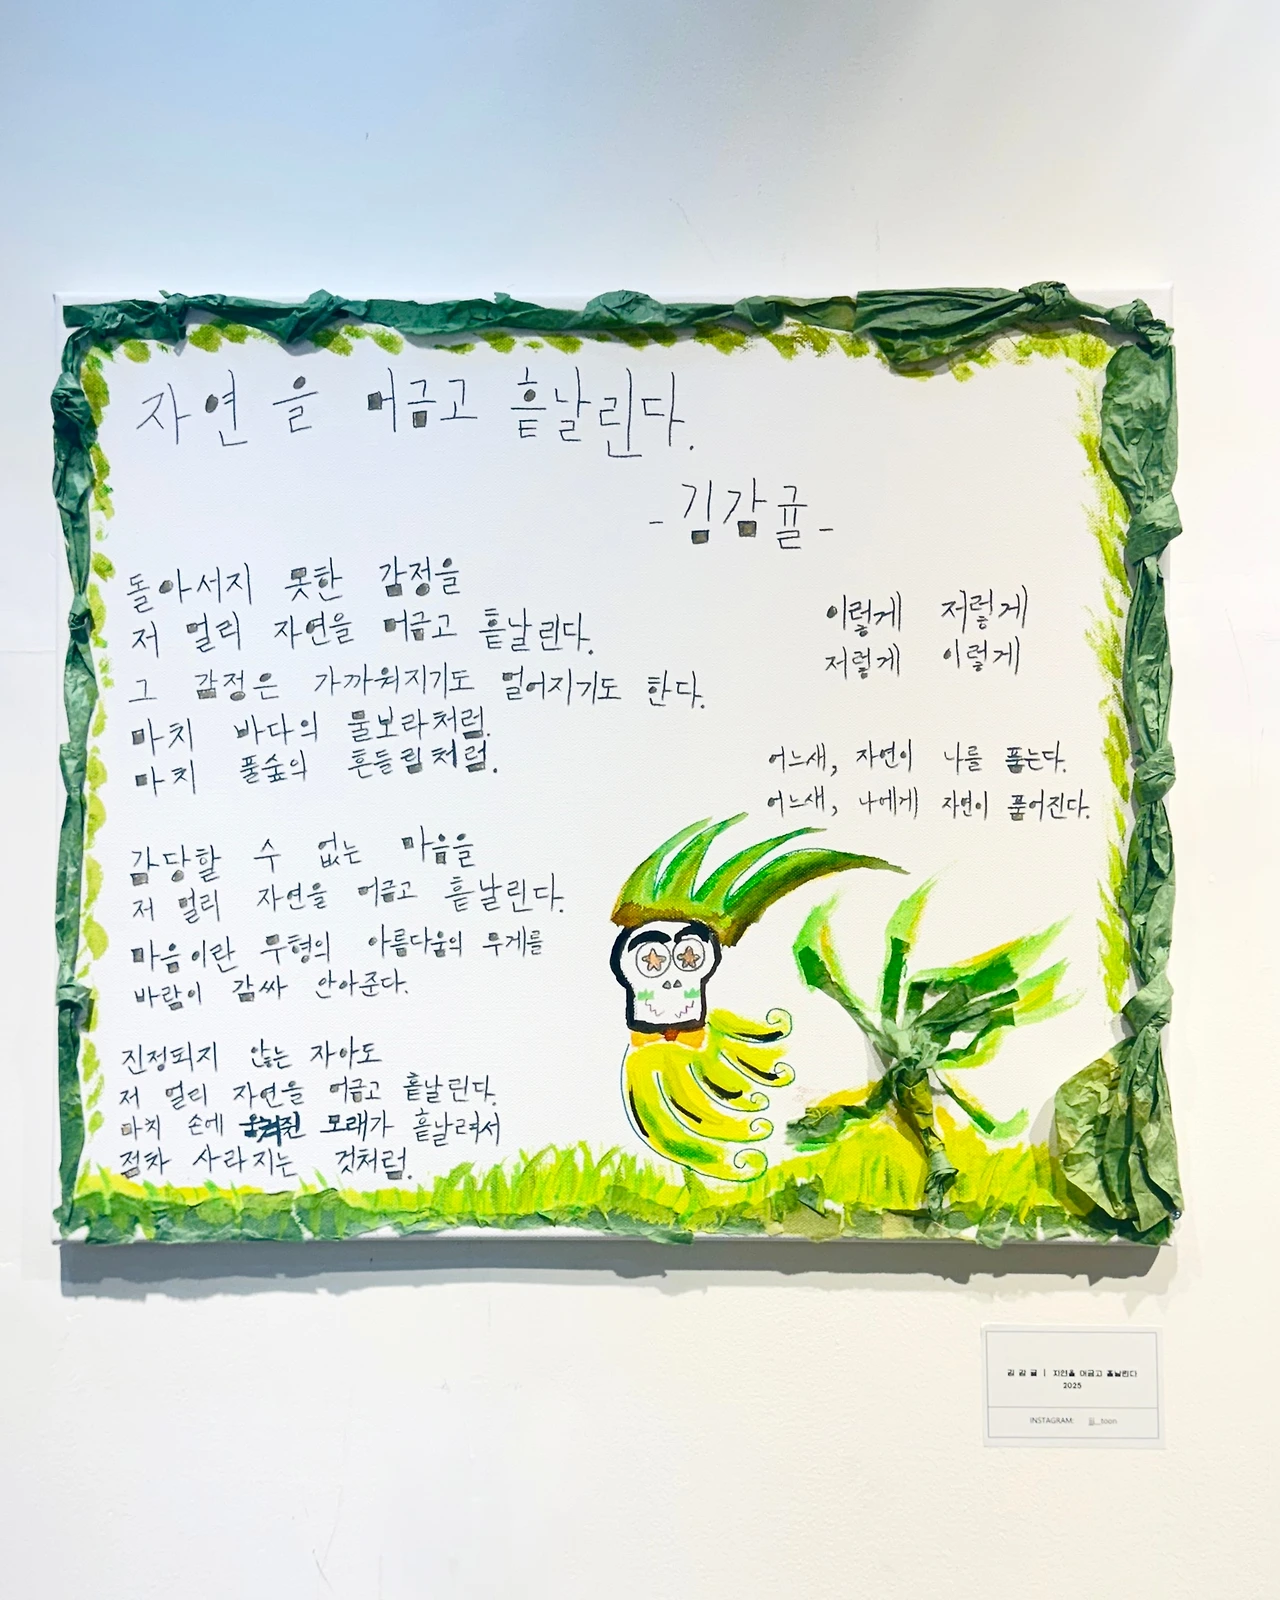 자연을 머금고 흩날린다.
- 김감귤 -
돌아서지 못한 감정을
저 멀리 자연을 머금고 흩날린다.
그 감정은 가까워지기도 멀어지기도 한다.
마치 바다의 물보라처럼.
마치 풀숲의 흔들림처럼.
감당할 수 없는 마음을
저 멀리 자연을 머금고 흩날린다.
마음이란 무형의 아름다움의 무게를
바람이 감싸 안아준다.
진정되지 않는 자아도
저 멀리 자연을 머금고 흩날린다.
마치 손에 모래가 흩날려서
점차 사라지는 것처럼.
이렇게 저렇게
저렇게 이렇게
어느새, 자연이 나를 품는다.
어느새, 나에게 자연이 품어진다.
김 감 귤 | 자연을 머금고 흩날린다
2025
INSTAGRAM: